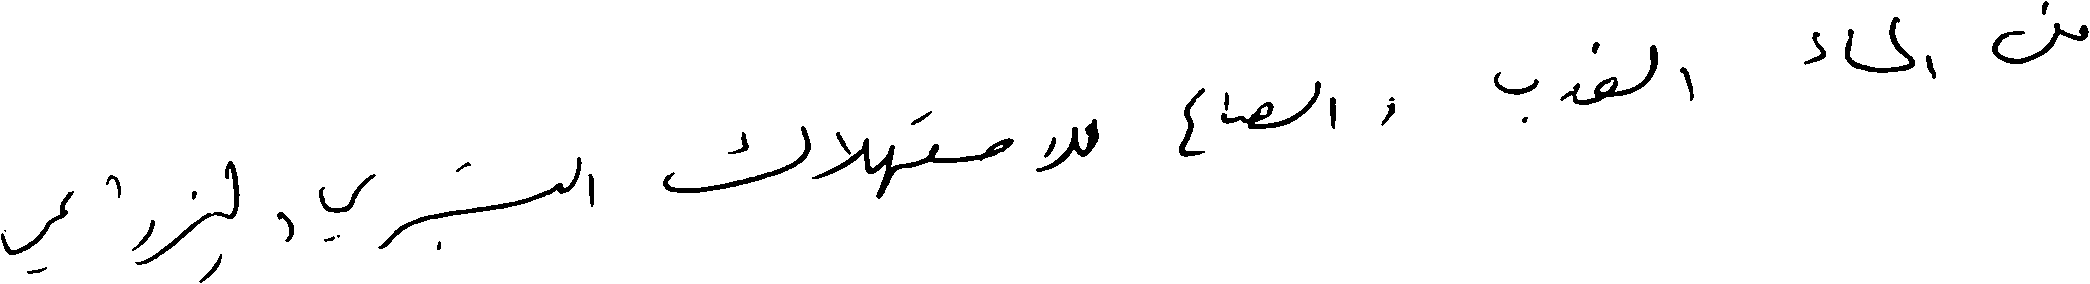 من الماء العذب والصالح للاستهلاك البشري والزراعي